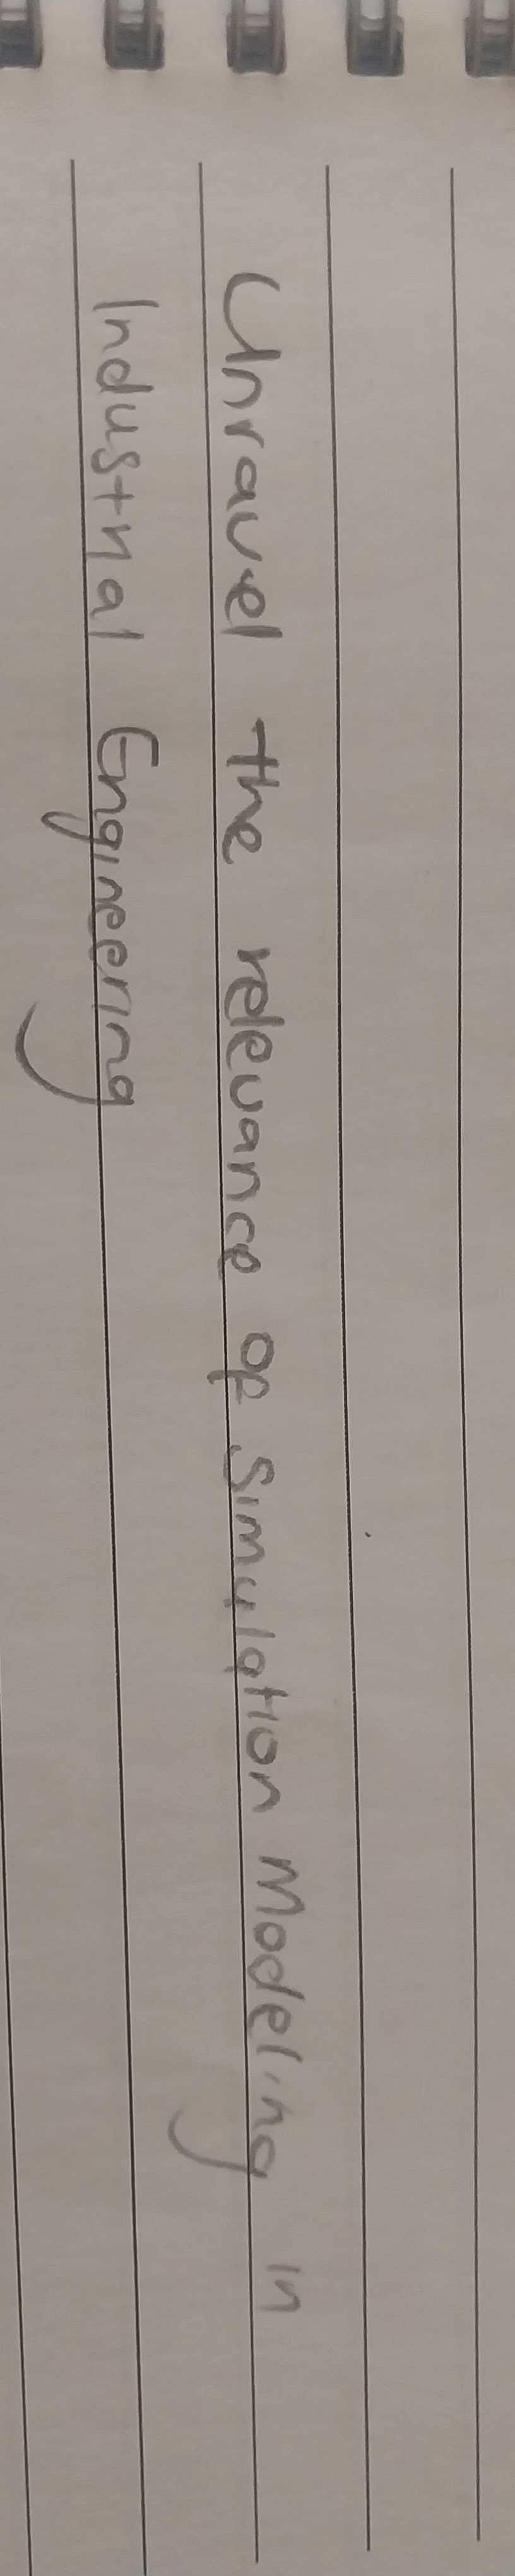 Unravel the relevance of Simulation Modeling in
Industrial Engineering